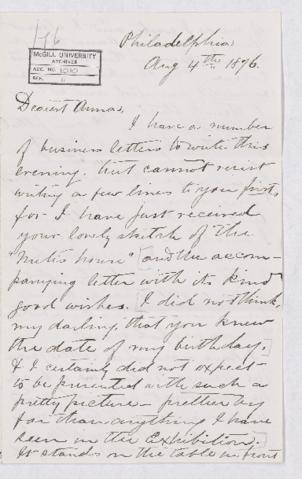 176
McGILL UNIVERSITY
ARCHIVES
ACC. NO. 1010
REF.
Philadelphia
Aug 4th 1876.
Dearest Anna,
I have a number
of business letters to write this
evening. but cannot resist
writing a few lines to you first,
for I have just received
your lovely sketch of the
house" and the accom-
panying letter with its kind
good wishes. I did not think,
my darling, that you knew
the date of my birthday,
& I certainly did not expect
to be presented with such a
pretty picture - prettier by
far than anything I have
seen in the Exhibition.
It stands on the table in front